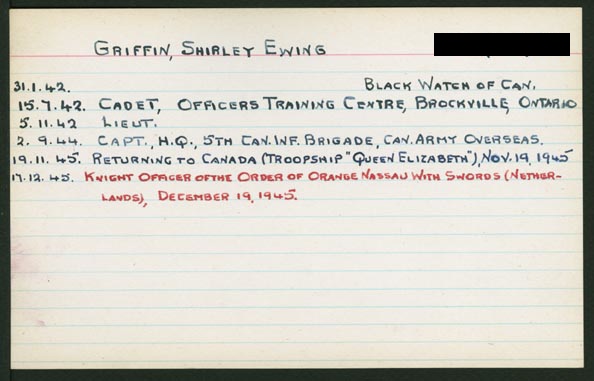 GRIFFIN, SHIRLEY EWING
31.1.42. BLACK WATCH OF CAN.
15.7.42. CADET, OFFICERS TRAINING CENTRE, BROCKVILLE, ONTARIO
5.11.42 LIEUT.
2.9.44. CAPT., H.Q., 5TH CAN. INF. BRIGADE, CAN. ARMY OVERSEAS.
19.11.45. RETURNING TO CANADA (TROOPSHIP "QUEEN ELIZABETH"), NOV. 19, 1945
19.12.45. KNIGHT OFFICER OF THE ORDER OF ORANGE NASSAU WITH SWORDS (NETHER-
LANDS), DECEMBER 19, 1945.